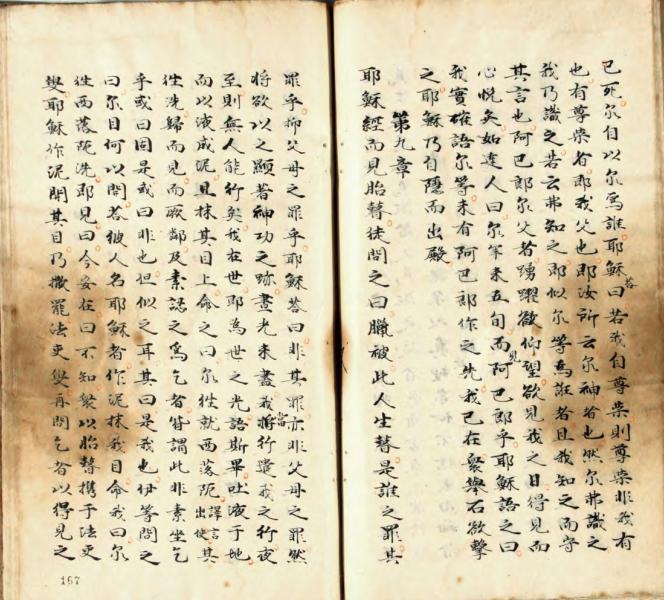 已死尔自以尔為誰耶穌答曰若我自尊榮則尊榮非我有
也有尊榮者即我父也即汝所云尔神者也然尔弗識之
我乃識之若云弗知之即似尔等為誑者且我知之而守
其言也阿巴郎尔父者踴躍欲仰望欲見我之日得見而
心悅矣如達人曰尔年未五旬而見阿巴郎乎耶穌語之曰
我實確語尔等未有阿巴郎作之先我已在眾舉石欲擊
之耶穌乃自隱而出殿
第九章
耶穌經而見胎瞽徒問之曰臘被此人生瞽是誰之罪其
罪乎抑父母之罪乎耶穌答曰非其罪亦非父母之罪然
將欲以之顯著神功之跡晝光未盡我當將行遣我之行夜
至則無人能行矣我在世即為世之光語斯畢吐液于地
而以液成泥且抹其目上命之曰尔徃就西落阨譯言出使其
徃洗歸而見而厥鄰及素誌之為乞者皆謂此非素坐乞
乎或曰固是或曰非也但似之耳其曰是我也伊等問之
曰尔目何以開答彼人名耶穌者作泥抹我目命我曰尔
徃西落阨洗即見曰今安在曰不知眾以胎瞽携于法吏
叟耶穌作泥開其目乃撒罷法吏叟再問乞者以得見之
167